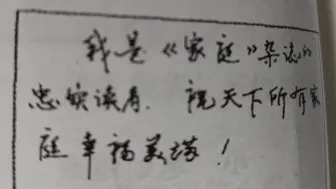 我是《家庭》杂志的
忠实读者.祝天下所有家
庭幸福美满！